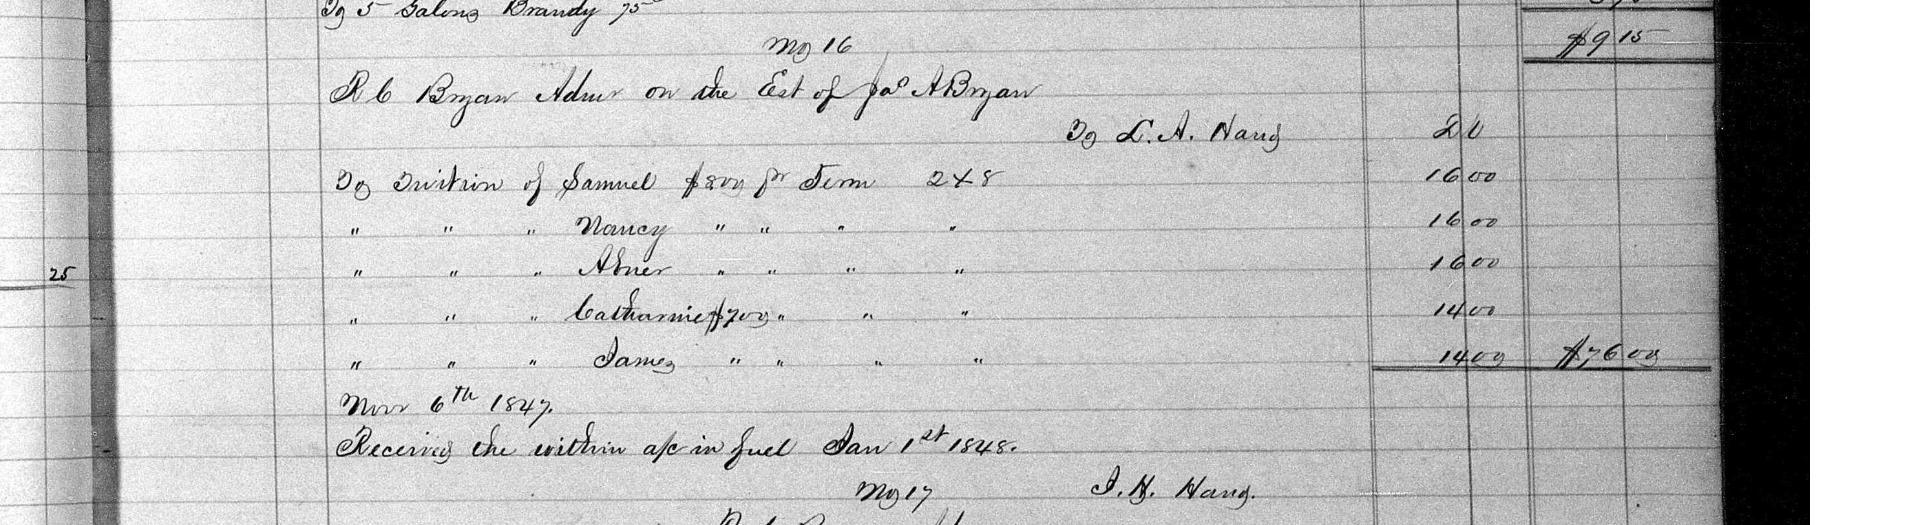 To 5 Galons Brandy 75
$9 15
No 16
R C Bryan Admr on the Est of Jas A Bryan
To L. A. Haug Dr
To Tuition of Samuel $800 pr Term 2 x 8 16 00
" " " Nancy " " " " 16 00
" " " Abner " " " " 16 00
" " " Catharine $700 " " " 14 00
" " " James " " " " 14 00 $76 00
25
Novr 6th 1847.
Received the within a/c in fuel Jan 1st 1848.
No 17 I. H. Haug.